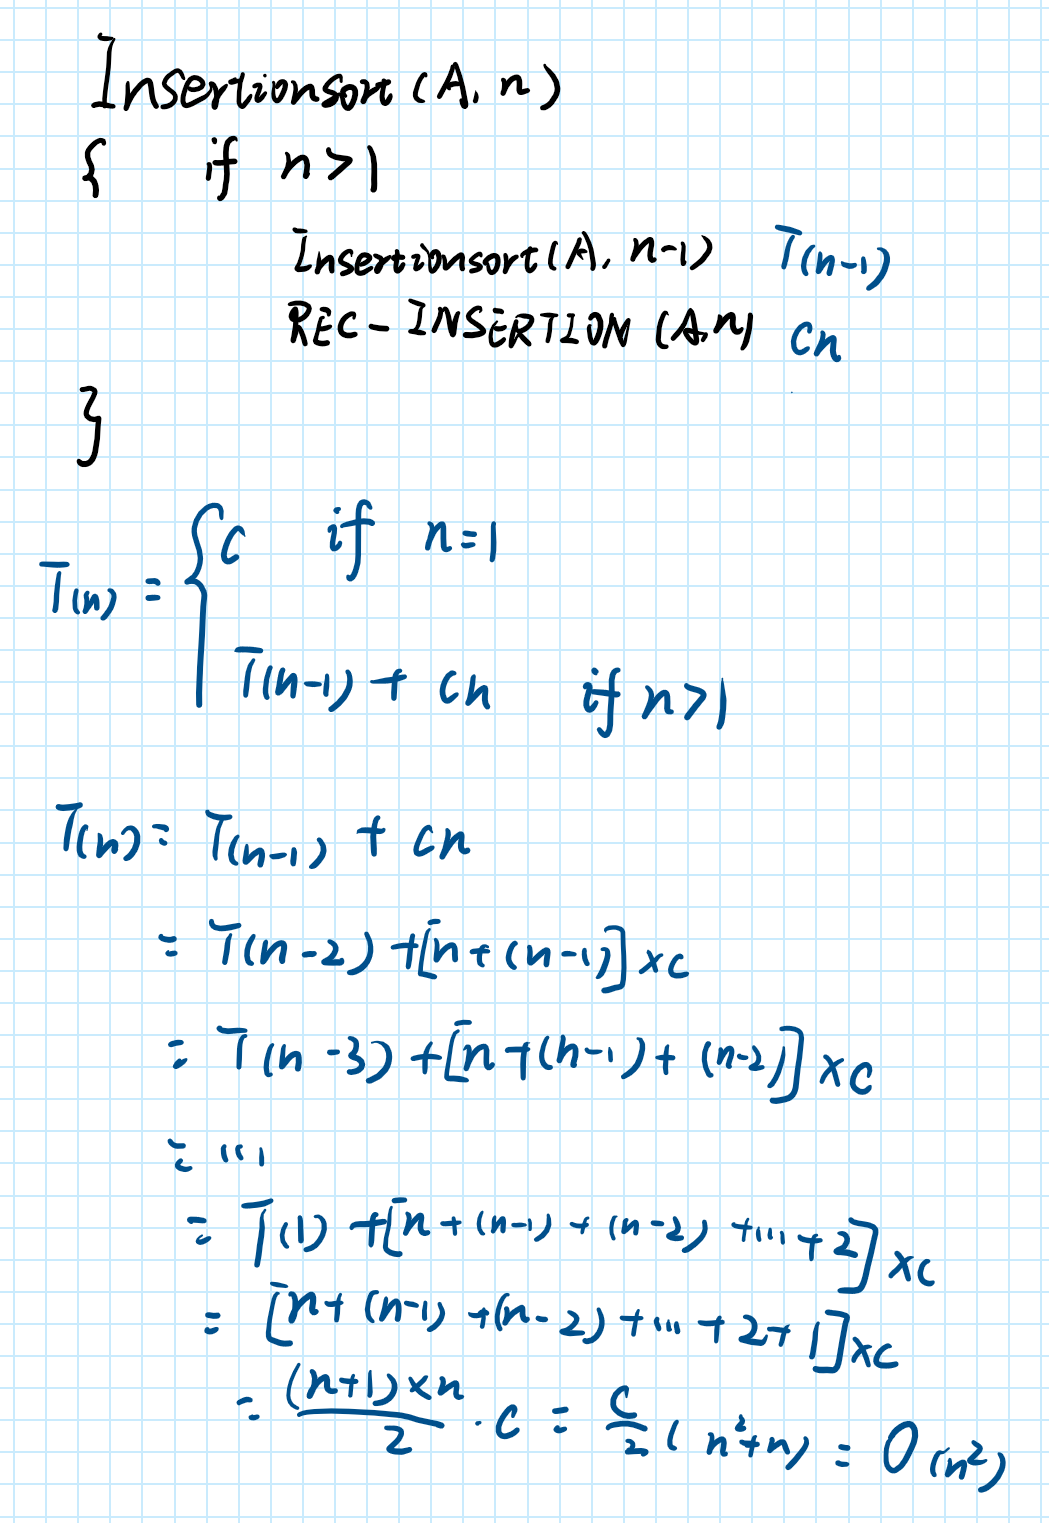 Insertionsort (A, n)
{ if n>1
Insertionsort (A, n-1) T(n-1)
REC-INSERTION (A,n) cn
}
T(n) = { c if n=1
T(n-1) + cn if n>1
T(n) = T(n-1) + cn
= T(n-2) + [n + (n-1)] × c
= T(n-3) + [n + (n-1) + (n-2)] × c
= ...
= T(1) + [n + (n-1) + (n-2) + ... + 2] × c
= [n + (n-1) + (n-2) + ... + 2 + 1] × c
= (n+1)×n / 2 · c = c/2 (n²+n) = O(n²)